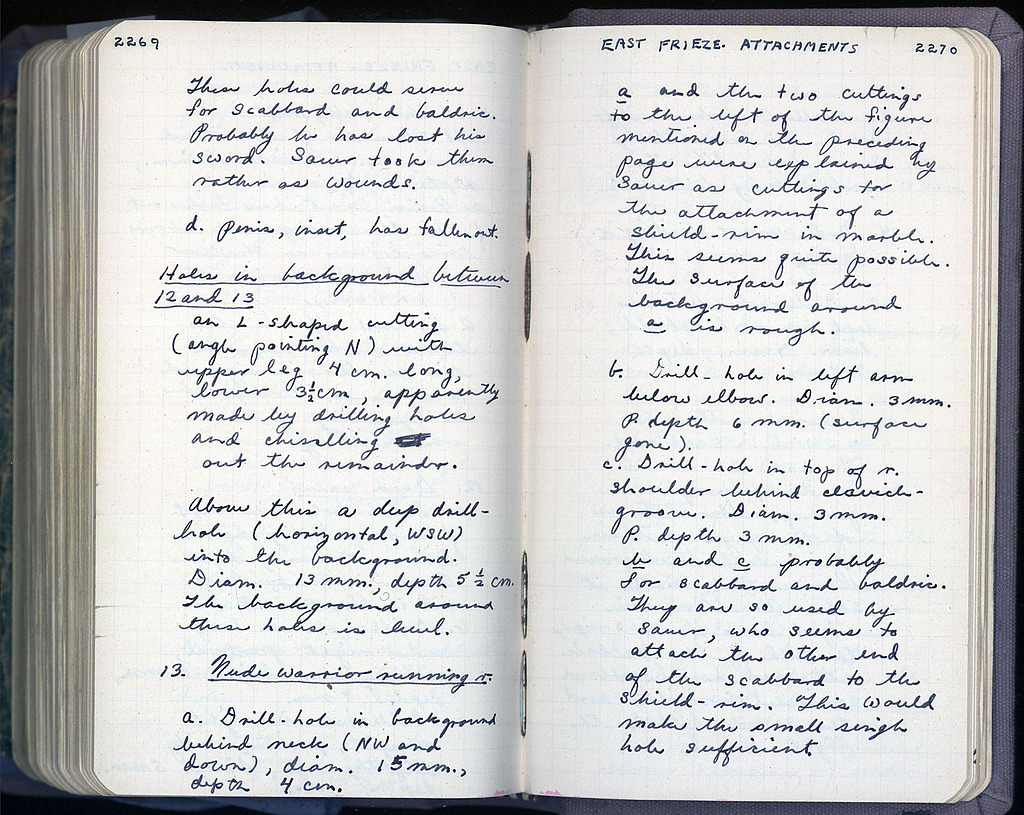 2269
These holes could serve
for scabbard and baldric.
Probably he has lost his
sword. Sauer took them
rather as wounds.
d. penis, inset, has fallen out.
Holes in background between
12 and 13
an L-shaped cutting
(angle pointing N) with
upper leg 4 cm. long,
lower 3½ cm, apparently
made by drilling holes
and chiselling
out the remainder.
Above this a deep drill-
hole (horizontal, WSW)
into the background.
Diam. 13 mm., depth 5½ cm.
The background around
these holes is level.
13. Nude warrior running r.
a. Drill-hole in background
behind neck (NW and
down), diam. 15 mm.,
depth 4 cm.
EAST FRIEZE. ATTACHMENTS 2270
a and the two cuttings
to the left of the figure
mentioned on the preceding
page were explained by
Sauer as cuttings for
the attachment of a
shield-rim in marble.
This seems quite possible.
The surface of the
background around
a is rough.
b. Drill-hole in left arm
below elbow. Diam. 3 mm.
P. depth 6 mm. (surface
gone).
c. Drill-hole in top of r.
shoulder behind clavich-
groove. Diam. 3 mm.
P. depth 3 mm.
b and c probably
for scabbard and baldric.
They are so used by
Sauer, who seems to
attach the other end
of the scabbard to the
shield-rim. This would
make the small single
hole sufficient